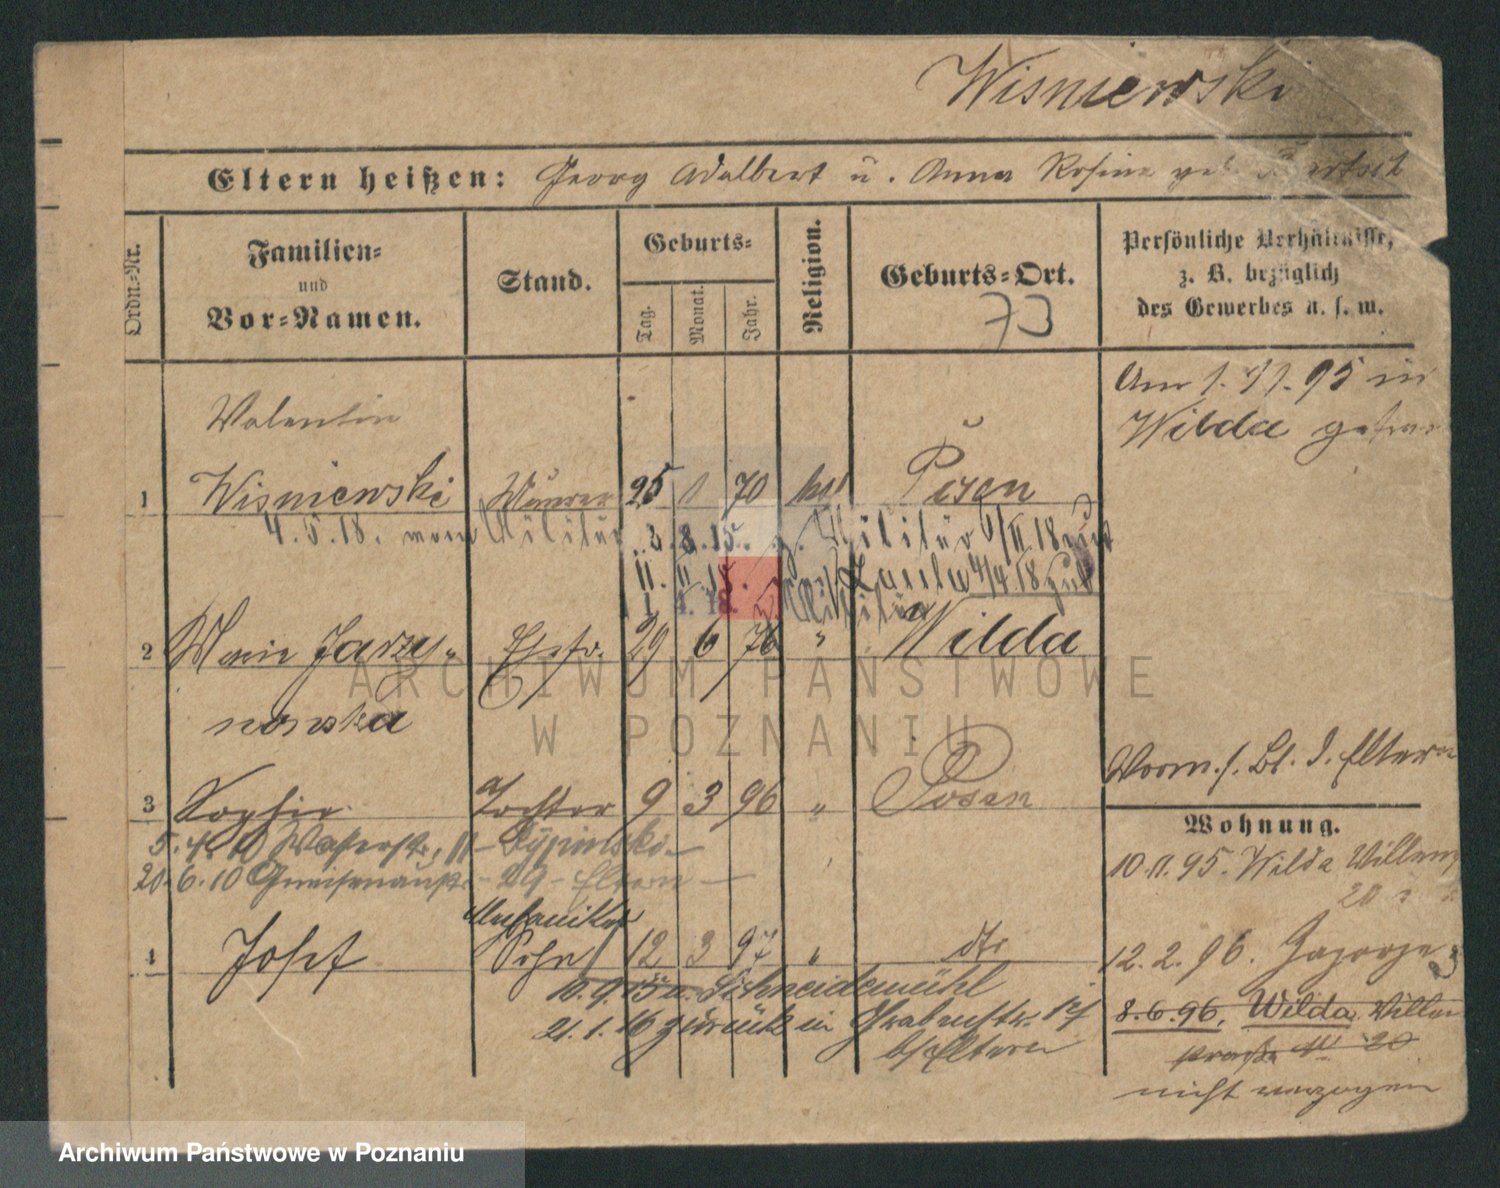 Wisniewski
Eltern heißen: Georg Adalbert u. Anna Rosina geb.
Ordn.-Nr.
Familien- und Vor-Namen.
Stand.
Geburts-
Tag. Monat. Jahr.
Religion.
Geburts-Ort.
73
Persönliche Verhältnisse,
z. B. bezüglich
des Gewerbes u. s. w.
Am 1. 11. 95 in
Wilda
Valentin
1 Wisniewski Maurer 25 1 70 kat Posen
4. 5. 18. vom Militär 3. 8. 15. z. Militär 6/II 18
11. II 18. 4/4 18
1. 4. 18. z. Militär
2 Marie Jarzy- Ehefr. 29 6 76 " Wilda
nowska
ARCHIWUM PAŃSTWOWE
W POZNANIU
Vorm. s. Bl. d. Eltern
3 Sophie Tochter 9 3 96 " Posen
Wohnung.
5. 4. 10 Wasserstr. 11 -
20. 6. 10 Gneisenaustr. - 29 - Eltern -
10. 11. 95. Wilda
20
Mechaniker
4 Josef Sohn 12 3 97 " dto
12. 2. 96.
10. 9. 15 n. Schneidemühl
21. 1. 16 zurück in Grabenstr.
b/Eltern
8. 6. 96. Wilda
straße No 20
nicht verzogen
Archiwum Państwowe w Poznaniu